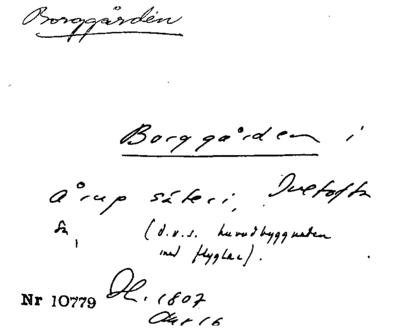 Borggården
Borggården i
Årup säteri, Ivetofta
sn, (d.v.s. huvudbyggnaden
med flyglar).
Nr 10779 Dl. 1807